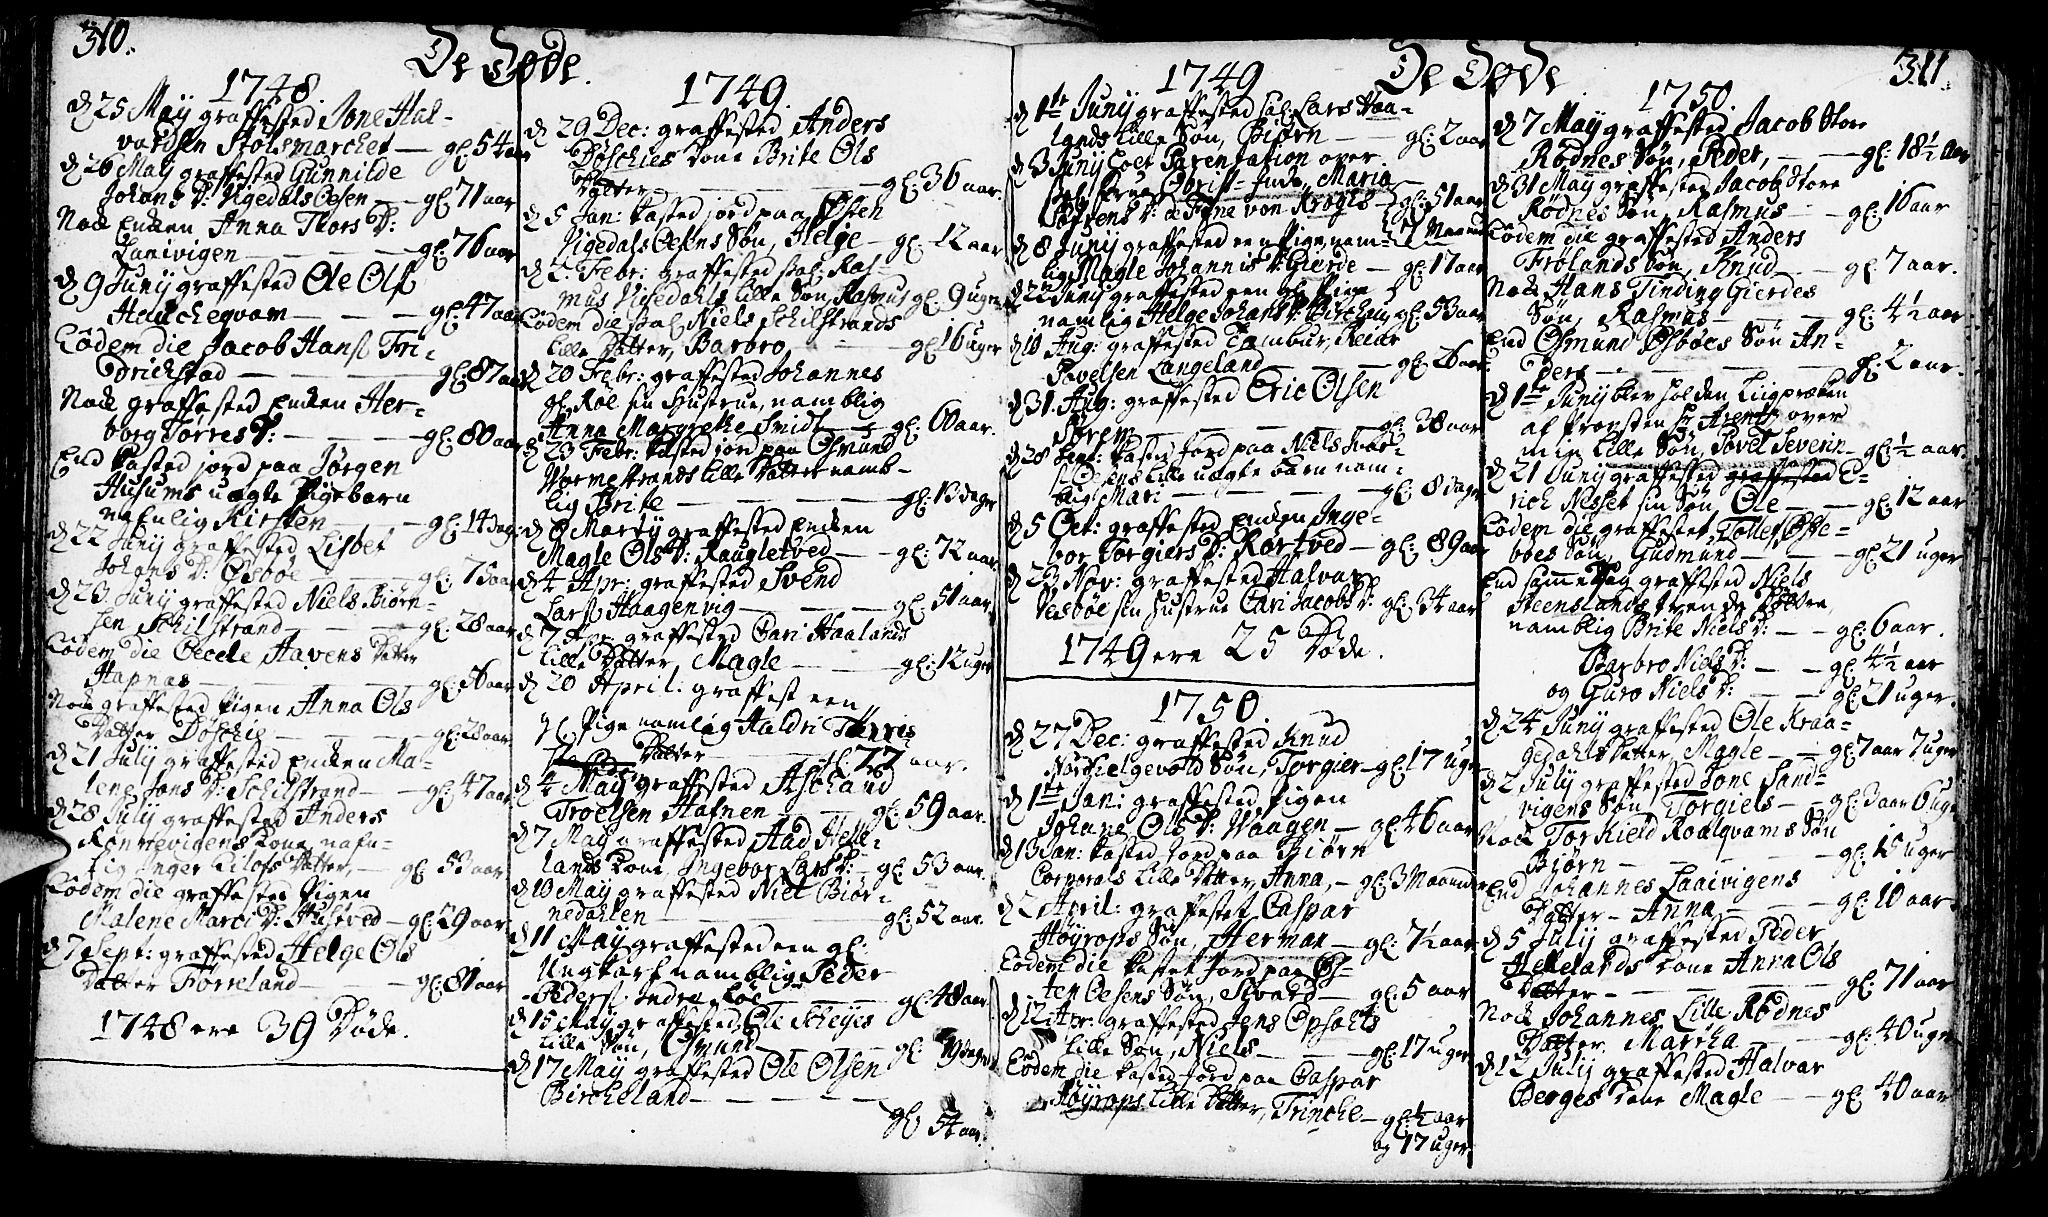 310.
De Døde.
1748.
d 25 May graffested Jone Hal-
vardsen Stølsmarchet — gl: 54 aar
d 26 May graffested Gunnilde
Johans D: Vigedals Oesen — gl: 71 aar
Nock Encken Anna Thors D:
Lanivigen — gl: 76 aar
d 9 Junij graffested Ole Ols
Haucheqvam — gl: 47 aar
Eodem die Jacob Hans Fri-
drichstad — gl: 87 aar
Nock graffested Encken Her-
borg Tørres D: — gl: 80 aar
End kasted jord paa Jørgen
Husums uægte Pigebarn
nafnlig Kirsten — gl: 14 dag:
d 22 Junij graffested Lisbet
Johans D: Øsbøe — gl: 75 aar
d 23 Junij graffested Niels Biørn-
sen Schilstrand — gl: 28 aar
Eodem die Cecele Havens Datter
Hapnas — gl: 36 aar
Nock graffested Pigen Anna Ols
Datter Døschie — gl: 28 aar
d 21 Julij graffested Encken Ma-
lene Jans D: Schilstrand — gl: 47 aar
d 28 Julij graffested Anders
Rønnevigens Kone nafn-
lig Inger Eilofs Datter, — gl: 53 aar
Eodem die graffested Pigen
Malene Marci D: Hustved — gl: 29 aar
d 7 Sept: graffested Helge Ols
Datter Førreland — gl: 81 aar
1748 ere 39 Døde.
1749.
d 29 Dec: graffested Anders
Døschies Kone Brite Ols
Datter — gl: 36 aar.
d 5 Jan: kasted jord paa Østen
Vigedals Oesens Søn, Helge — gl: 12 aar
d 2 Febr: graffested Sal: Ras-
mus Visedahls lille Søn, Rasmus gl: 9 uger
Eodem die Sal: Niels Schilstrands
lille Datter, Barbro — gl: 16 uger
d 20 Febr: graffested Johannes
gl: Roe sin Hustrue, namblig
Anna Margrethe Smidt — gl: 60 aar.
d 23 Febr: kasted jord paa Osmund
Wormestrands lille Datter namb-
lig Brite — gl: 13 dager
d 8 Martij graffested Encken
Magle Ols D: Raugletved — gl: 72 aar
d 4 Apr: graffested Svend
Lars Haagenvig — gl: 51 aar
d 7 Apr: graffested Cari Haalands
lille Datter, Magle — gl: 12 uger
d 20 April: graffest een
gl: Pige namlig Haldri Tørris
Datter — gl: 77 aar.
d 4 May graffested Aschand
Troelsen Hafnen — gl: 59 aar.
d 7 May graffested Aad Helle-
lands Kone, Ingebor Lars D: — gl: 53 aar.
d 10 May graffested Niel Biør-
nedahlen — gl: 52 aar
d 11 May graffested een gl:
Ungkarl namblig Peder
Peders Indre Løe — gl: 48 aar
d 15 May graffested Ole Scheyis
lille Søn, Osmund — gl: 19 dager
d 17 May graffested Ole Olsen
Bircheland —
gl: 54 aar.
De Døde
311.
1749
d 1te Junij graffested Sal: Lars Haa-
lands lille Søn, Biørn — gl: 2 aar
d 3 Junij loet Parentation over
Sal: Frue Obrist-Inde, Maria
Søfrens D: de Fyne von Krogis — gl: 51 aar
7 Maaned
d 8 Junij graffested een Pige nam-
lig Magle Johannis D: Gierde — gl: 17 aar
d 22 Junij graffested een gl: Pige
namlig Helge Johans D: Birchen, gl: 53 aar
d 10 Aug: graffested Tambur, Reiar
Povelsen Langeland — gl: 26 aar
d 31 Aug: graffested Eric Olsen
Sørem — gl: 38 aar
d 28 Sept: kasted Jord paa Niels Ivar-
s: Oesens lille uægte barn nam-
lig Mari — gl: 8 dager
d 5 Oct: graffested Encken Inge-
bor Torgiers D: Rørtved — gl: 89 aar
d 23 Nov: graffested Halvar
Vesbøe sin Hustrue Cari Jacobs D: gl: 34 aar
1749 ere 25 Døde.
1750.
d 27 Dec: graffested Knud
Nørhelgevold Søn, Torgier — gl: 17 uger
d 1te Jan: graffested Pigen
Johane Ols D: Waagen — gl: 46 aar
d 13 Jan: kasted Jord paa Biørn
Corporals lille Datter, Anna, — gl: 3 Maaneder
d 2 April: graffestet Caspar
Høyrops Søn, Herman — gl: 7½ aar
Eodem die kastet Jord paa Øs-
ten Oesens Søn, Sivard — gl: 5 aar
d 12 Apr: graffested Jens Opsahls
lille Søn, Niels — gl: 17 uger
Eodem die kasted Jord paa Caspar
Høyrops lille Datter, Trinche — gl: ½ aar
og 17 uger
1750.
d 7 May graffested Jacob Store
Rødnes Søn, Peder, — gl: 18½ aar
d 31 May graffested Jacob Store
Rødnes Søn, Rasmus — gl: 16 aar
Eodem die graffested Anders
Frølands Søn, Knud — gl: 7 aar.
Nock Hans Tinding Gierdes
Søn, Rasmus — gl: 4½ aar
End Osmund Øsbøes Søn An-
ders — gl: 2 aar.
d 1te Junij blev holden Liigpræken
af Provsten Hr Arentz over
min lille Søn, Povel Severin — gl: ½ aar.
d 21 Junij graffested graffested E-
rich Nesset sin Søn, Ole — gl: 12 aar
Eodem die graffestet Tollef Øste-
bøes Søn, Gudmund — gl: 21 uger
End samme Dag graffested Niels
Steenslands trende Døttre
namblig Brite Niels D: — gl: 6 aar.
Barbro Niels D: — gl: 4½ aar
og Guro Niels D: — gl: 21 uger.
d 24 Junij graffested Ole Kraa-
gedahls Datter, Magle — gl: 7 aar 7 uger
d 2 Julij graffested Jone Sand-
vigens Søn, Torgiels — gl: 3 aar 6 uger
Nock Torkield Roalqvams Søn
Biørn — gl: 15 uger
End Johannes Laaivigens
Datter — Anna — gl: 10 aar.
d 5 Julij graffested Peder
Hellelands Kone Anna Ols
Datter — gl: 71 aar
Nock Johannes Lille Rødnes
Datter Martha — gl: 40 uger
d 12 Julij graffested Halvar
Berges Kone Magle — gl: 40 aar